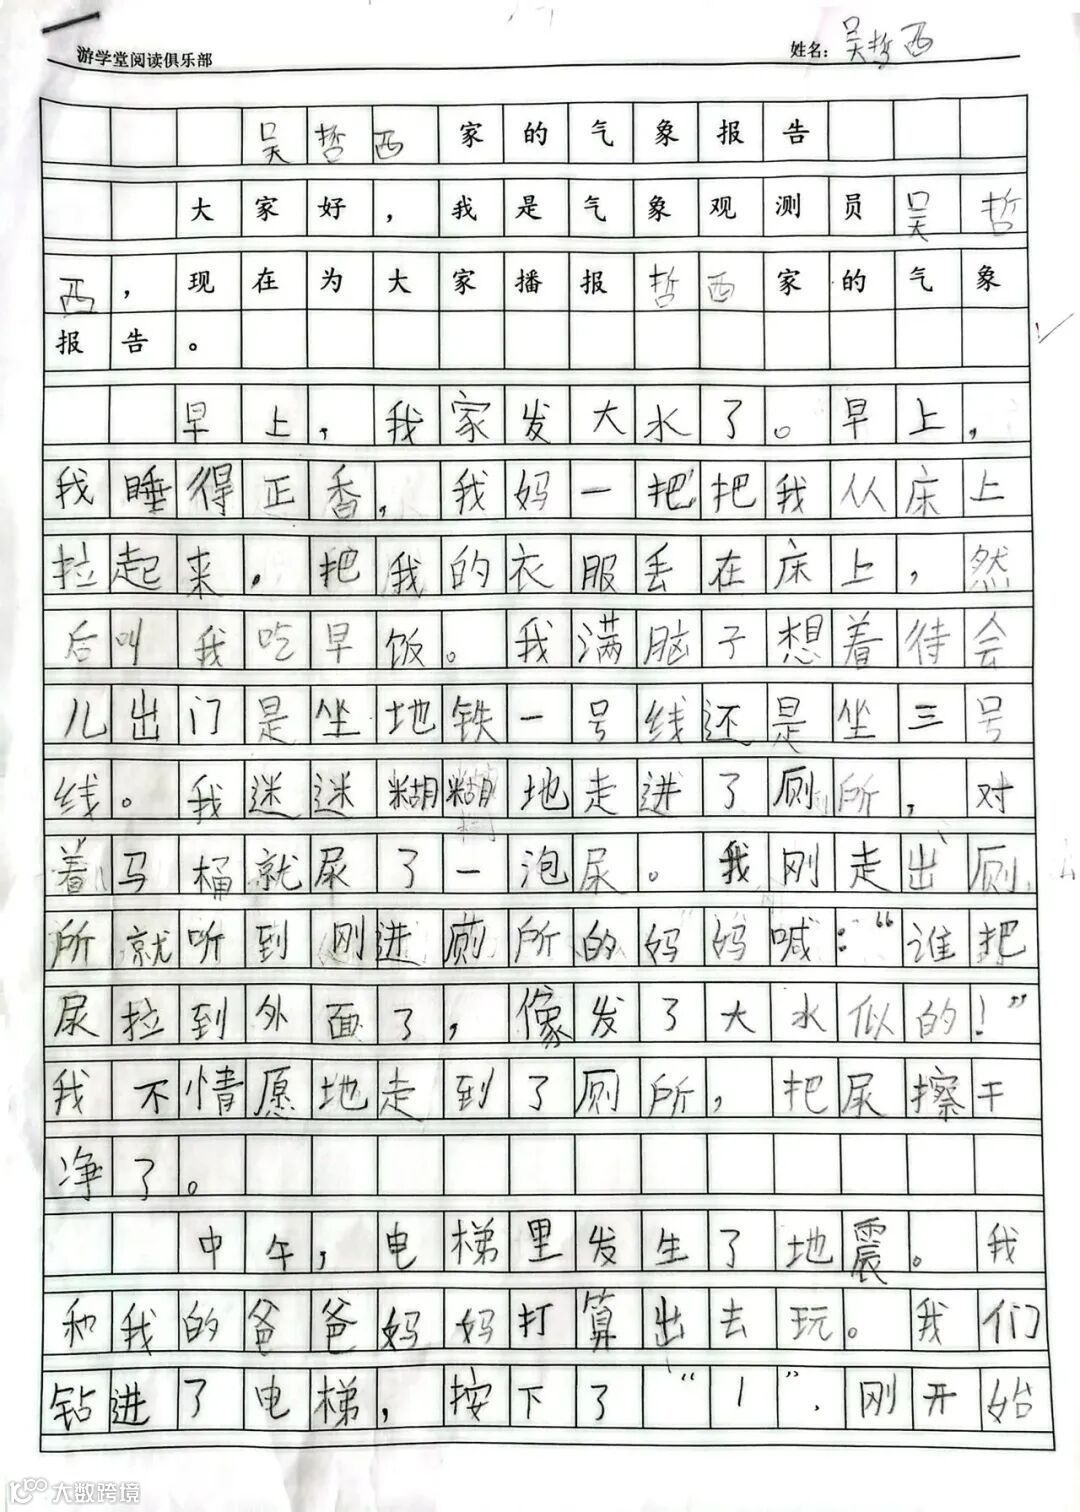 游学堂阅读俱乐部 姓名：吴哲西
吴哲西家的气象报告
大家好，我是气象观测员吴哲
西，现在为大家播报哲西家的气象
报告。
早上，我家发大水了。早上，
我睡得正香，我妈一把把我从床上
拉起来，把我的衣服丢在床上，然
后叫我吃早饭。我满脑子想着待会
儿出门是坐地铁一号线还是坐三号
线。我迷迷糊糊地走进了厕所，对
着马桶就尿了一泡尿。我刚走出厕
所就听到刚进厕所的妈妈喊：“谁把
尿拉到外面了，像发了大水似的！”
我不情愿地走到了厕所，把尿擦干
净了。
中午，电梯里发生了地震。我
和我的爸爸妈妈打算出去玩。我们
钻进了电梯，按下了“1”，刚开始
大数跨境